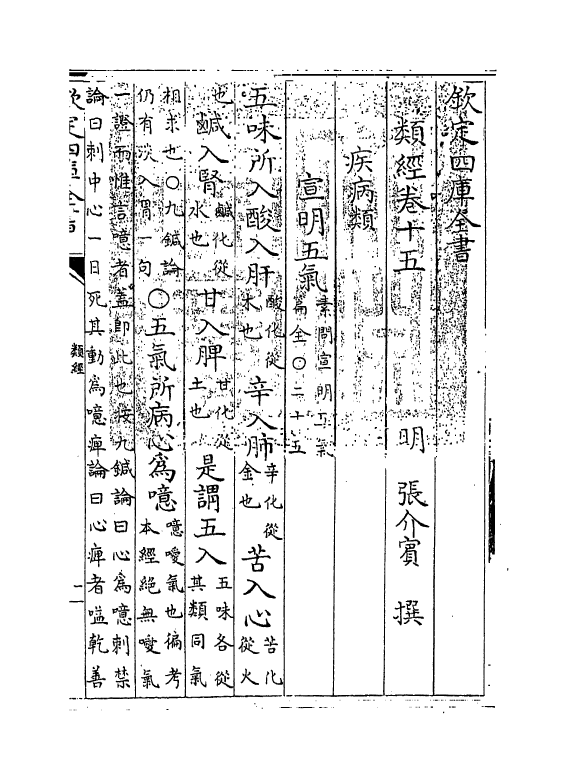 欽定四庫全書
類經卷十五
明 張介賓 撰
疾病類
宣明五氣素問宣明五氣篇全○二十五
五味所入酸入肝酸化從木也辛入肺辛化從金也苦入心苦化從火
也鹹入腎鹹化從水也甘入脾甘化從土也是謂五入五味各從其類同氣
相求也○九鍼論仍有淡入胃一句○五氣所病心為噫噫噯氣也徧考本經絕無噯氣
一證而惟言噫者蓋即此也按九鍼論曰心為噫刺禁
論曰刺中心一日死其動為噫痺論曰心痺者嗌乾善
欽定四庫全書
類經
一